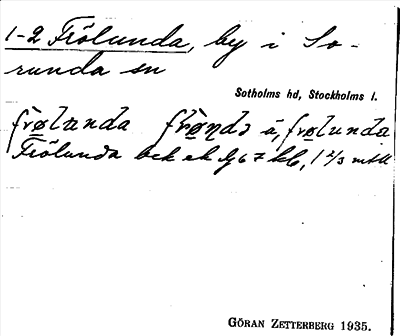 1-2 Frölunda, by i So-
runda sn
Sotholms hd, Stockholms l.
frølunda frønda å, frølunda
Frölunda eck ek Jb 7 kb, 1 2/3 mtl
GÖRAN ZETTERBERG 1935.